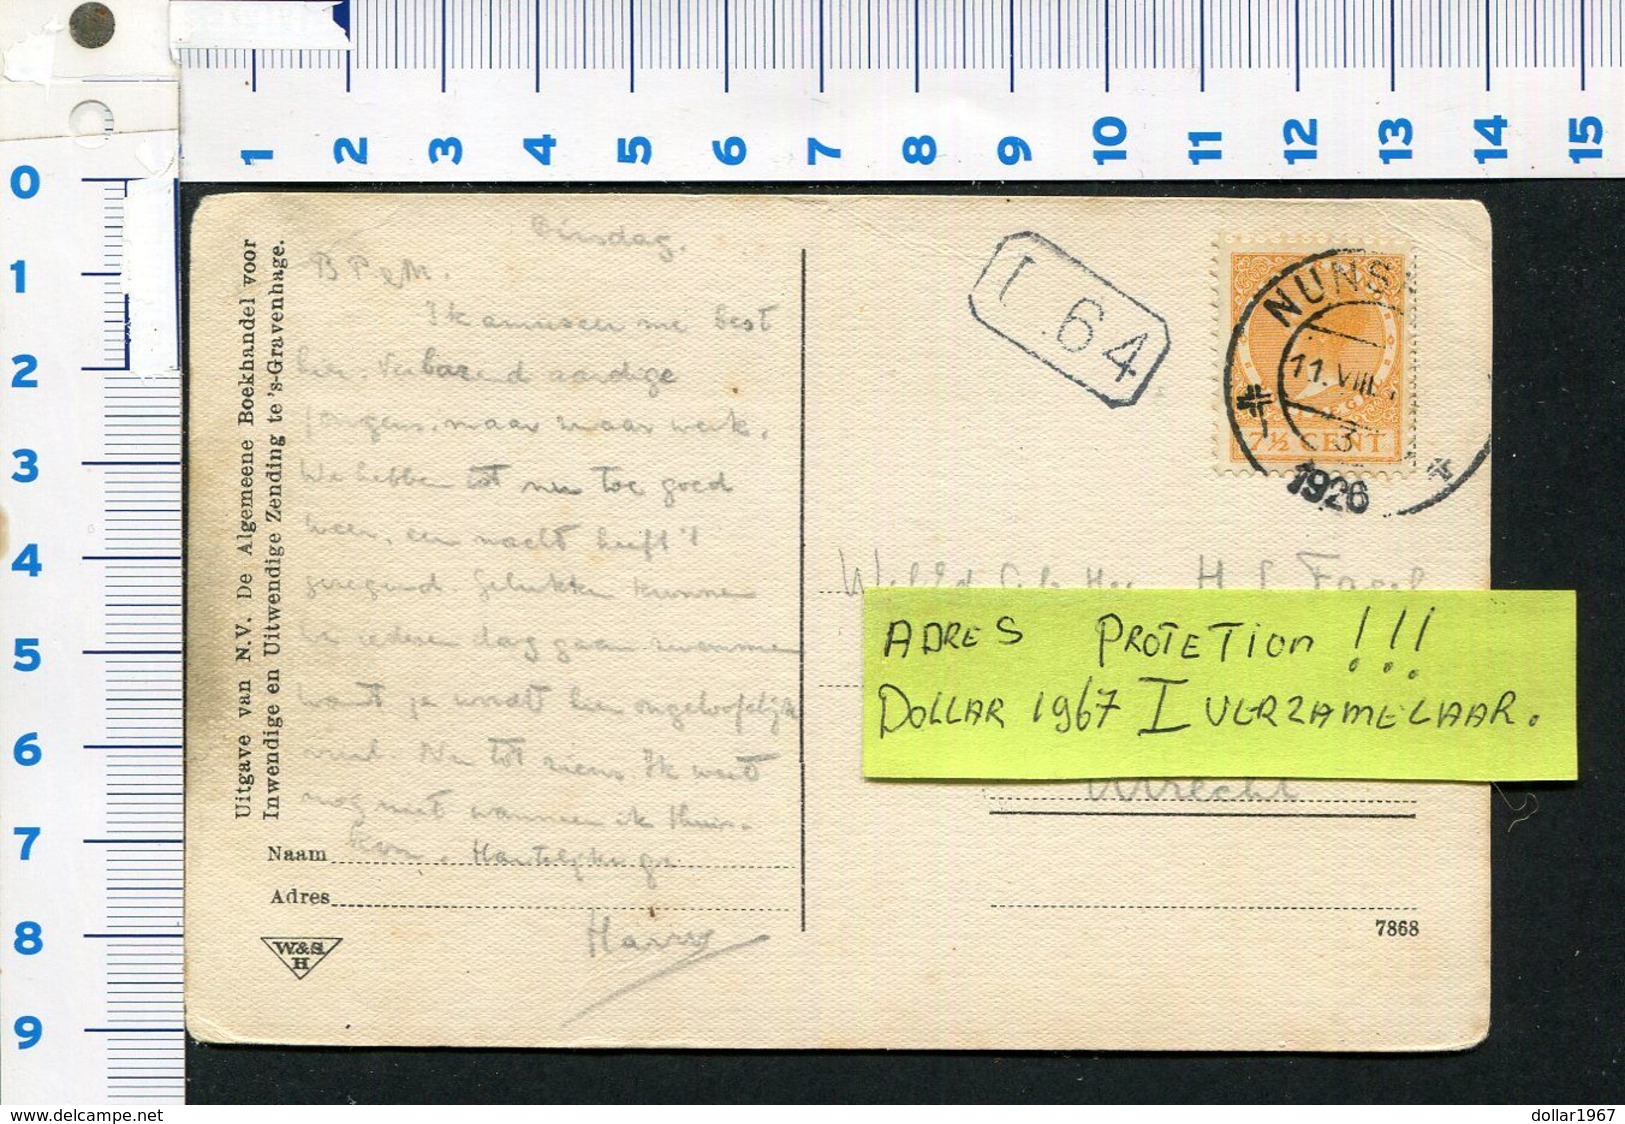 1 2 3 4 5 6 7 8 9 10 11 12 13 14 15
0
1
2
3
4
5
6
7
8
9
Uitgave van N.V. De Algemeene Boekhandel voor
Inwendige en Uitwendige Zending te 's-Gravenhage.
Dinsdag.
B P & M.
Ik amuseer me best
hier. Verbazend aardige
jongens, maar zwaar werk.
We hebben tot nu toe goed
weer, een nacht heeft 't
geregend. Gelukkig kunnen
we iederen dag gaan zwemmen
want je wordt hier ongelooflijk
vuil. Nu tot ziens. Ik weet
nog niet wanneer ik thuis-
kom. Hartelijke gr
Harry
Naam
Adres
W.&S.
H
T 64
NUNS
11.VIII.
3
1926
7½ CENT
H Fagel
ADRES PROTETION !!!
DOLLAR 1967 I VERZAMELAAR.
Utrecht
7868
www.delcampe.net
dollar1967